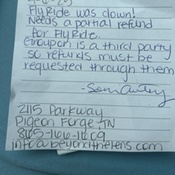 FlyRide was down!
Needs a partial refund
for FlyRide.
Groupon is a third party
so refunds must be
requested through them
2115 Parkway
Pigeon Forge, TN
info@beyondthelens.com